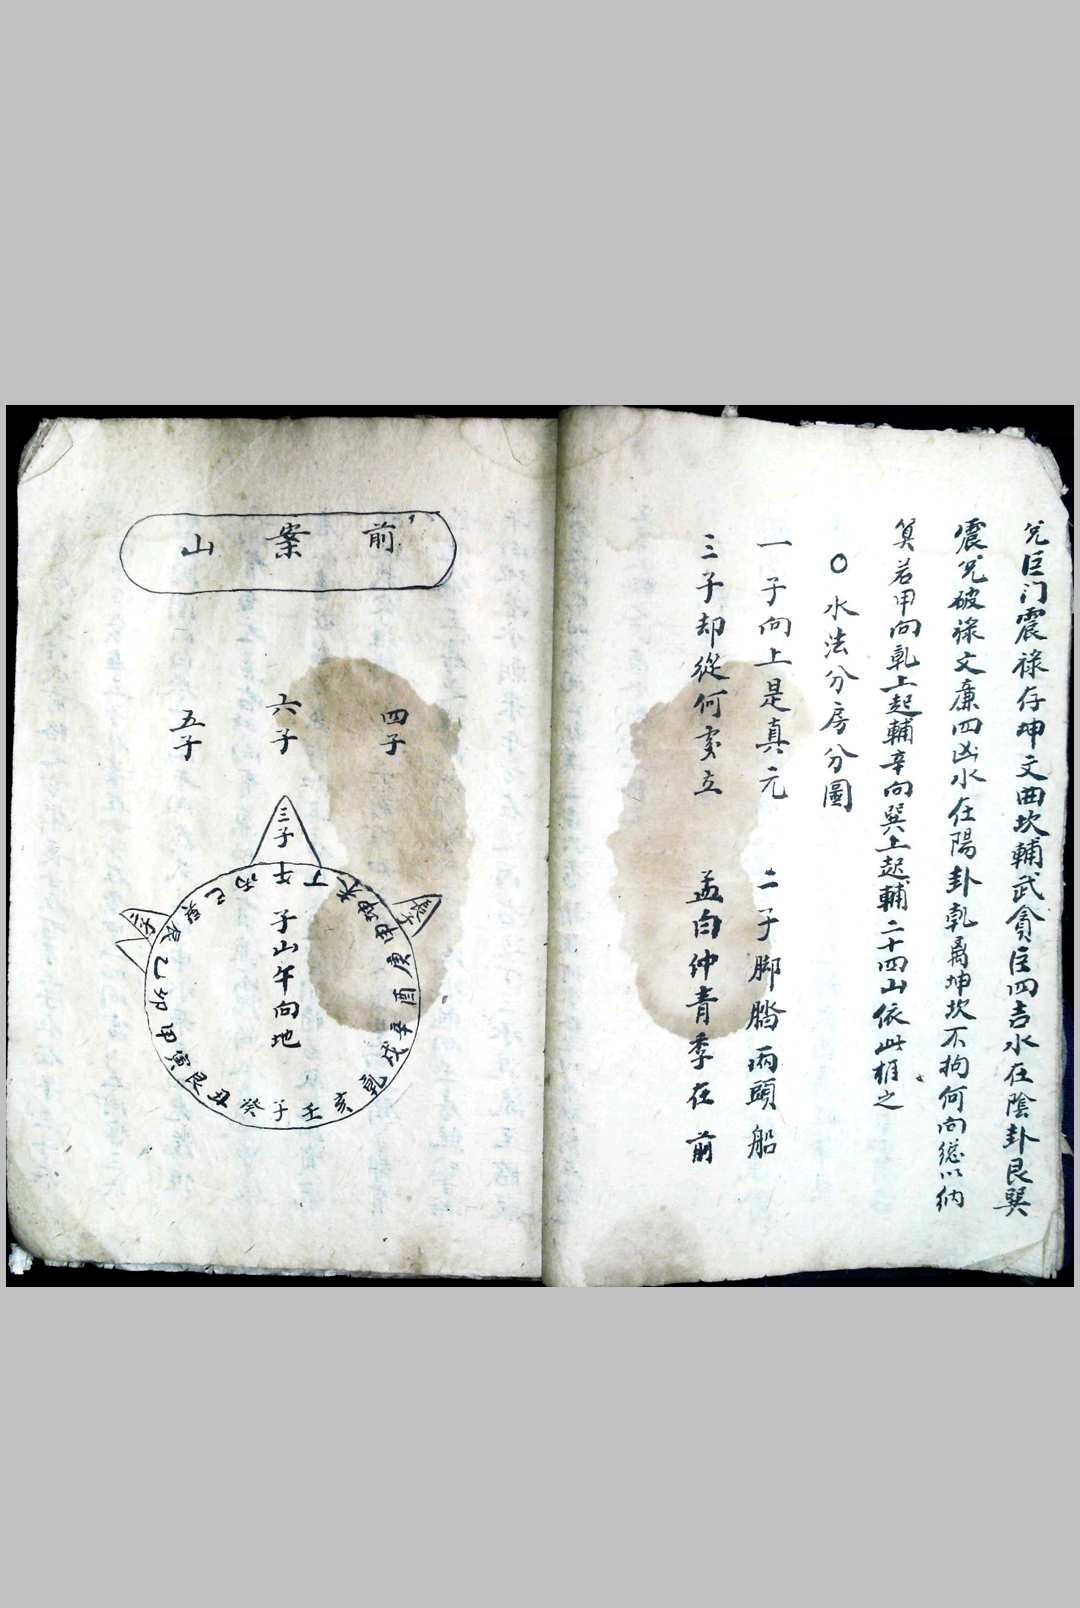 兌巨门震祿存坤文曲坎輔武貪巨四吉水在陰卦艮巽
震兌破祿文廉四凶水在陽卦乹离坤坎不拘何向総以納
算若甲向乹上起輔辛向巽上起輔二十四山依此推之
○水法分房分圖
一子向上是真元 二子脚踏兩頭船
三子却從何変立 孟白仲青季在前
前案山
四子
六子
五子
三子
午丁未坤申庚酉辛戌乾亥壬子癸丑艮寅甲卯乙辰巽巳丙
子山午向地